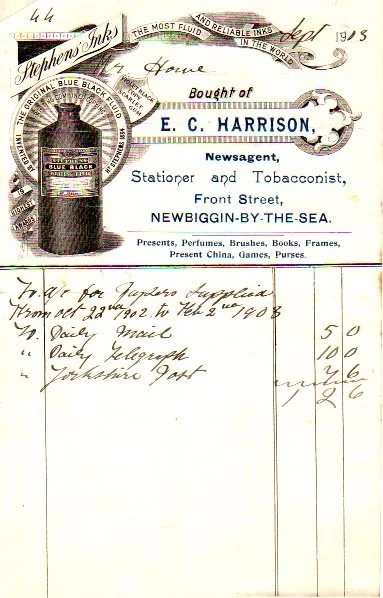 44
Stephens' Inks
THE MOST FLUID AND RELIABLE INKS IN THE WORLD
Sept 1903
Home
THE ORIGINAL BLUE BLACK FLUID
INVENTED BY HY STEPHENS 1834
STEPHENS'
BLUE BLACK
WRITING FLUID
19 HIGHEST AWARDS
Bought of
E. C. HARRISON,
Newsagent,
Stationer and Tobacconist,
Front Street,
NEWBIGGIN-BY-THE-SEA.
Presents, Perfumes, Brushes, Books, Frames,
Present China, Games, Purses.
To a/c for Papers Supplied
From Oct 22nd 1902 to Feb 2nd 1903
To. Daily Mail 5 0
" Daily Telegraph 10 0
" Yorkshire Post 7 6
1 2 6